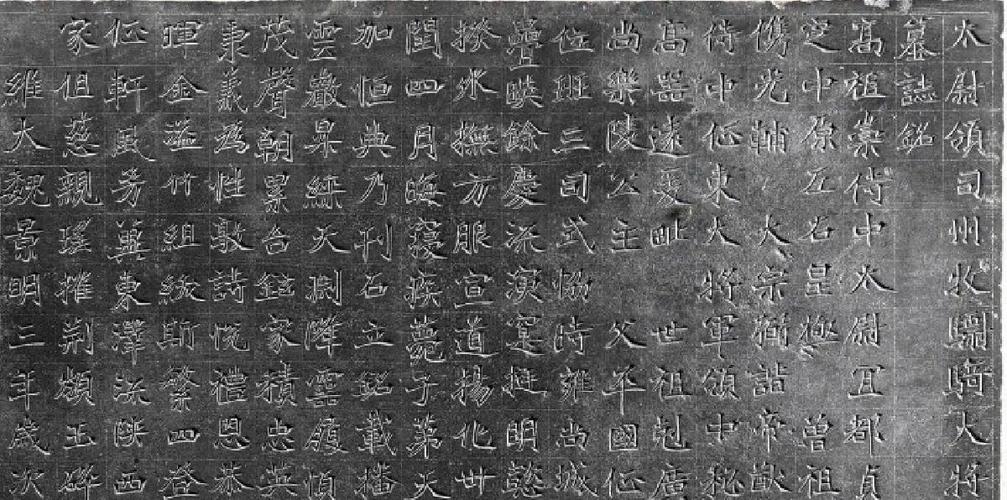 太尉領司州牧驃騎大將
墓誌銘
高祖崇侍中太尉宜都貞
定中原左右皇極 曾祖
儁光輔 太宗弼諧帝猷
侍中征東大將軍領中秘
高器遠爰毗 世祖剋廣
尚樂陵公主 父平國征
位班三司式協時雍尚城
疊映餘慶流演寔挺明懿
揆外撫方服宣道揚化世
閏四月晦寢疾薨于第天
加恒典乃刊石立銘載播
雲巖杲天降靈履順
茂聲朝累台鉉家積忠英
秉義為性敦詩悅禮恩恭
暉金竹組紱斯繁四登
征軒風芳冀東澤流陝西
家徂慈親瑤摧荊頹玉碎
維大魏景明三年歲次